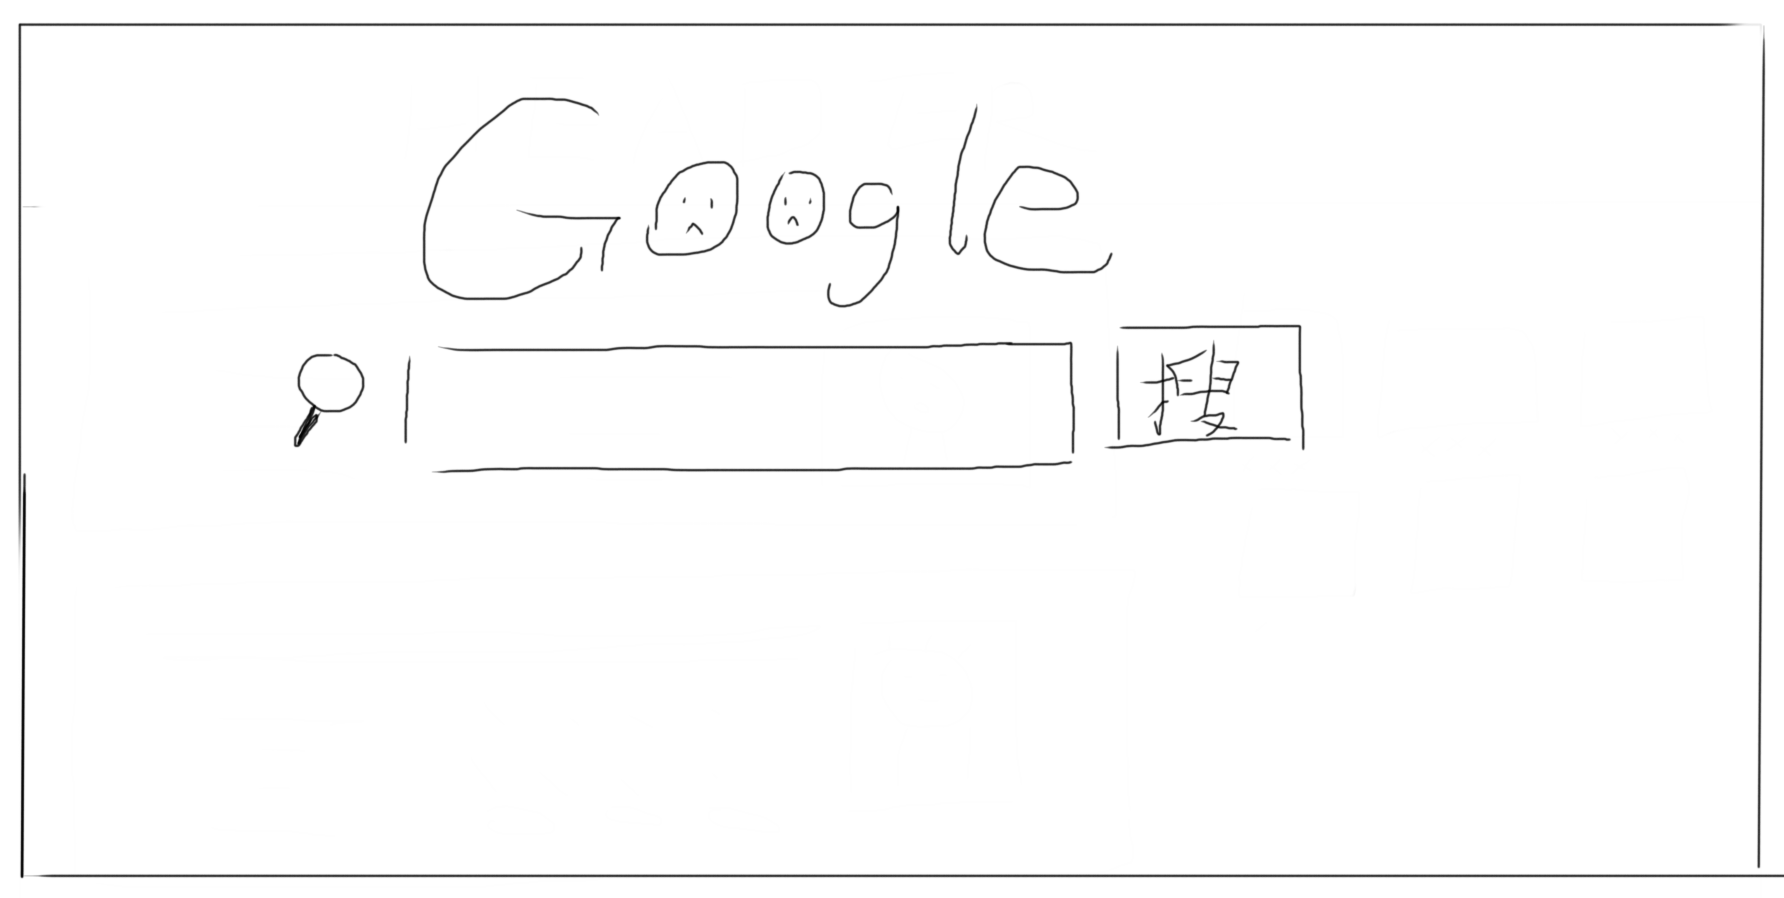 Google
搜